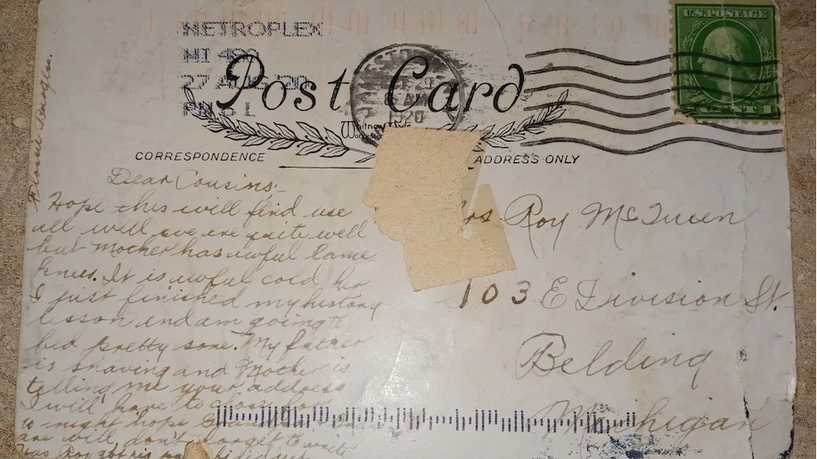 METROPLEX
MI 480
27 AUG '20
PM 8 L
U.S. POSTAGE
Post Card
1920
Whitney Made
CORRESPONDENCE
ADDRESS ONLY
Dear Cousins:-
Hope this will find use
all well we are quite well
but Mother has awful lame
knees. It is awful cold, ha
I just finished my history
lesson and am going to
bed pretty soon. My father
is shaving and Mother is
telling me your address
I will have to close for
to night hope
are well, don't forget to write
Has Roy got his
Mrs. Roy McQueen
103 E Division St.
Belding
Michigan